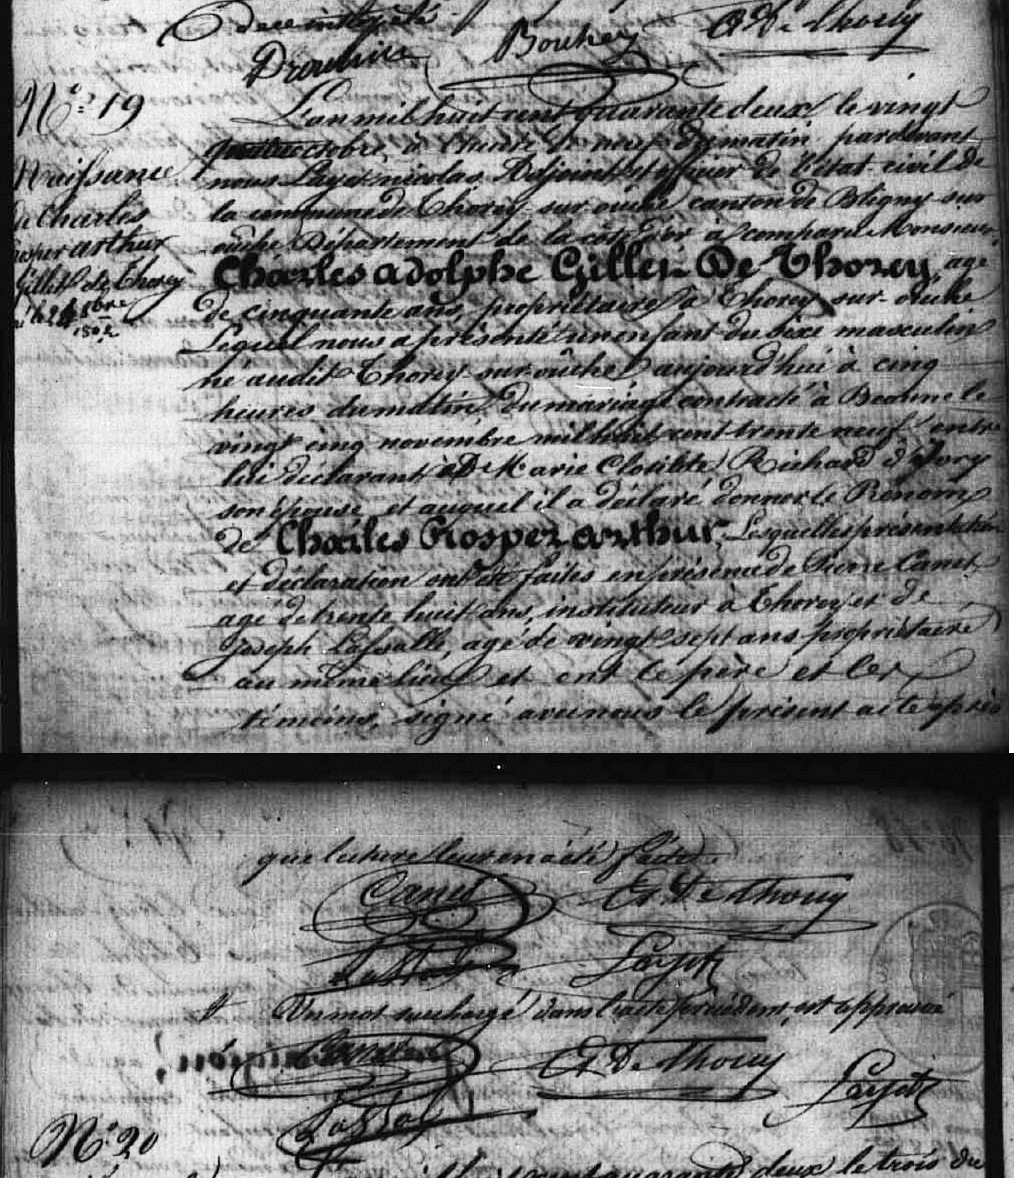 Bouhey
G De Thorey
Drouhin
N.º 19
Naissance
de Charles
prosper arthur
Gillet de Thorey
né le 24 8bre
L'an mil huit cent quarante deux, le vingt
quatre octobre, à l'heure de neuf du matin pardevant
nous Layet nicolas Adjoint et officier de l'état-civil de
la commune de Thorey-sur-ouche canton de Bligny sur
ouche Département de la côte d'or à comparu Monsieur
Charles adolphe Gillet De Thorey, agé
de cinquante ans, propriétaire à Thorey sur-ouche
Lequel nous a présenté un enfant du sexe masculin
né audit Thorey sur ouche aujourd'hui à cinq
heures du matin, du mariage contracté à Beaune le
vingt cinq novembre mil huit cent trente neuf entre
lui déclarant et De Marie Clotilde Richard d'Ivry
son épouse, et auquel il a déclaré donner le Prénom
de Charles Prosper arthur, Lesquelles présentation
et déclaration ont été faites en présence de Pierre Canet
agé de trente huit ans, instituteur à Thorey et de
Joseph Lassalle, agé de vingt-sept ans propriétaire
au même lieu et ont le père et les
témoins, signé avec nous le présent acte après
que lecture leur en a été faite.
Canet G De Thorey
Layet
Un mot surchargé dans l'acte précédent, est approuvé
Canet G De Thorey
Layet
N.º 20
quarante deux le trois du